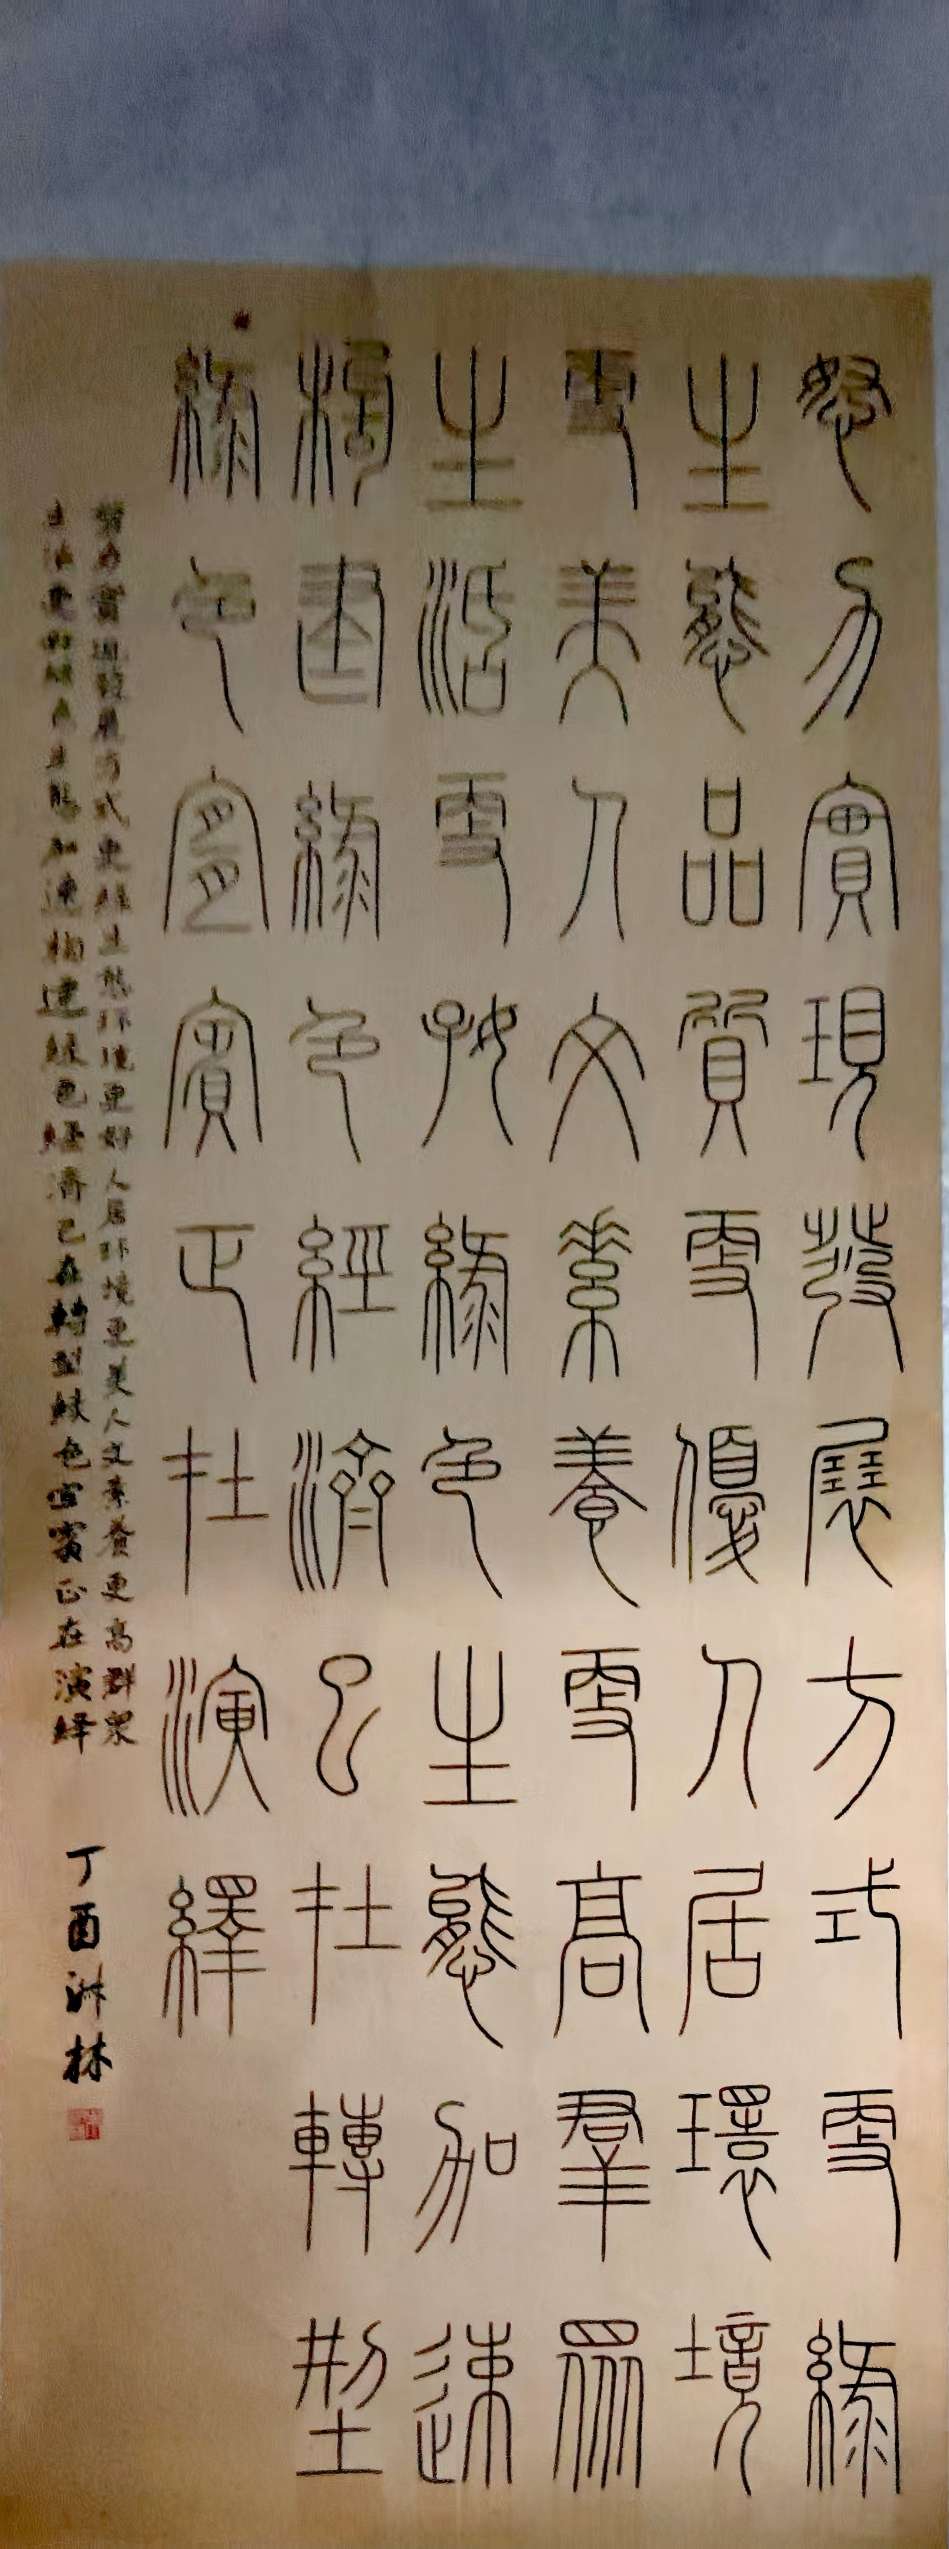 努力實現發展方式更綠
生態品質更優人居環境
更美人文素養更高羣眾
生活更好綠色生態加速
構建綠色經濟已在轉型
綠色宜賓正在演繹
努力實現發展方式更綠生態环境更好人居环境更美人文素養更高群眾
生活更好綠色生態加速構建綠色經濟已在轉型綠色宜賓正在演繹
丁酉 林